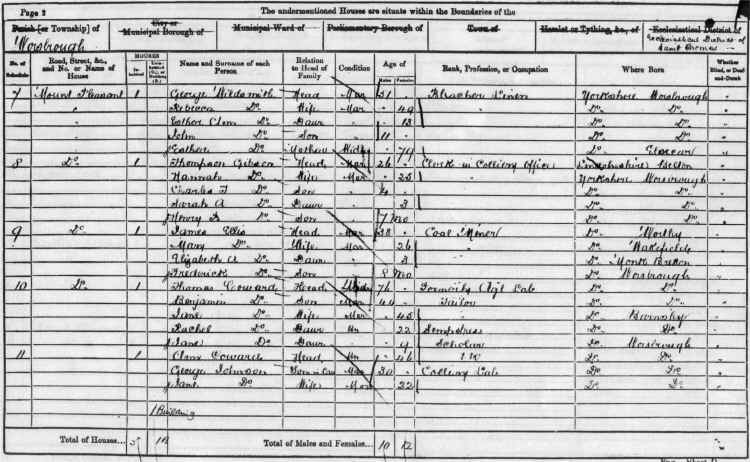 Page 2 The undermentioned Houses are situate within the Boundaries of the
Parish [or Township] of City or Municipal Borough of Municipal Ward of Parliamentary Borough of Town of Hamlet or Tything, &c., of Ecclesiastical District of
Worsbrough Ecclesiastical District of Saint Thomas
No. of Schedule Road, Street, &c., and No. or Name of House HOUSES Inhabited Uninhabited (U.), or Building (B.) Name and Surname of each Person Relation to Head of Family Condition Age of Males Females Rank, Profession, or Occupation Where Born Whether Blind, or Deaf-and-Dumb
7 Mount Pleasant 1 George Wildsmith Head Mar 51 Bleacher Linen Yorkshire Worsbrough
Rebecca Do. Wife Mar 49 Do. Do.
Esther Ann Do. Daur 13 Do. Do.
John Do. Son 11 Do. Do.
Esther Do. Mother Widw 79 Do. Elsecar
8 Do. 1 Thompson Gibson Head Mar 26 Clerk in Colliery Office Lincolnshire
Hannah Do. Wife Mar 25 Yorkshire Worsbrough
Charles T Do. Son 4 Do. Do.
Sarah A Do. Daur 3 Do. Do.
Henry Do. Son 7 Mo Do. Do.
9 Do. 1 James Ellis Head Mar 38 Coal Miner Do.
Mary Do. Wife Mar 26 Do. Wakefield
Elizabeth A Do. Daur 3 Do.
Frederick Do. Son 8 Mo Do. Worsbrough
10 Do. 1 Thomas Coward Head 76 Formerly Agl Lab Do. Do.
Benjamin Do. Son Mar 44 Tailor Do. Do.
Jane Do. Wife Mar 45 Do. Barnsley
Rachel Do. Daur Un 22 Sempstress Do. Do.
Jane Do. Daur 9 Scholar Do. Worsbrough
11 1 Coward Head Un 46 Do. Do.
George Johnson Mar 30 Colliery Lab Do. Do.
Jane Do. Wife Mar 22 Do. Do.
1 Building
Total of Houses... 5 1B Total of Males and Females... 10 12